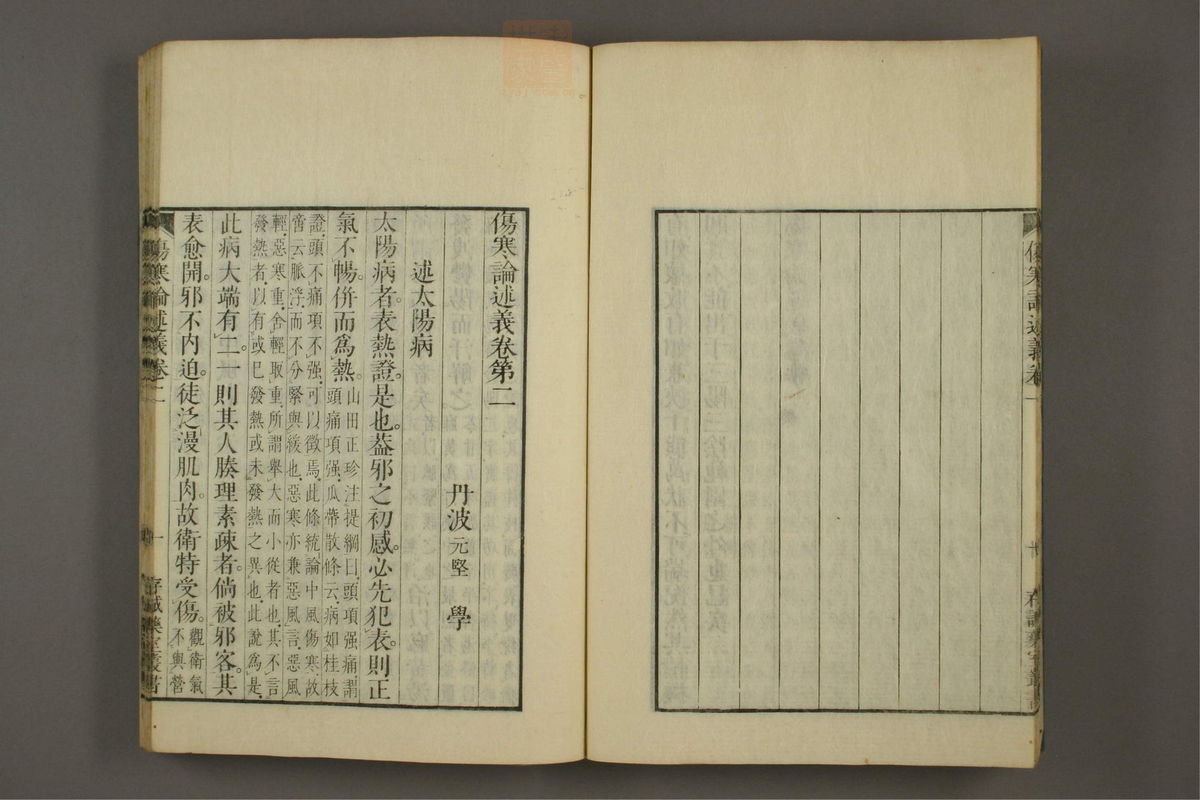 傷寒論述義卷第二
丹波元堅 學
述太陽病
太陽病者。表熱證是也。蓋邪之初感。必先犯表。則正
氣不暢。併而爲熱。山田正珍注提綱曰、頭項强痛、謂
頭痛項强、瓜蔕散條云、病如桂枝
證、頭不痛、項不强、可以徵焉、此條統論中風傷寒、故
啻云脈浮、而不分緊與緩也、惡寒亦兼惡風言、惡風
輕、惡寒重、舍輕取重、所謂舉大而小從者也、其不言
發熱者、以有或已發熱或未發熱之異也、此說爲是、
此病大端有二。一則其人腠理素疎者。倘被邪客。其
表愈開。邪不內迫。徒泛漫肌肉。故衛特受傷。觀衛氣
不與營
傷寒論述義卷二
一
存誠藥室叢書
傷寒論述義卷一
存誠藥室叢書